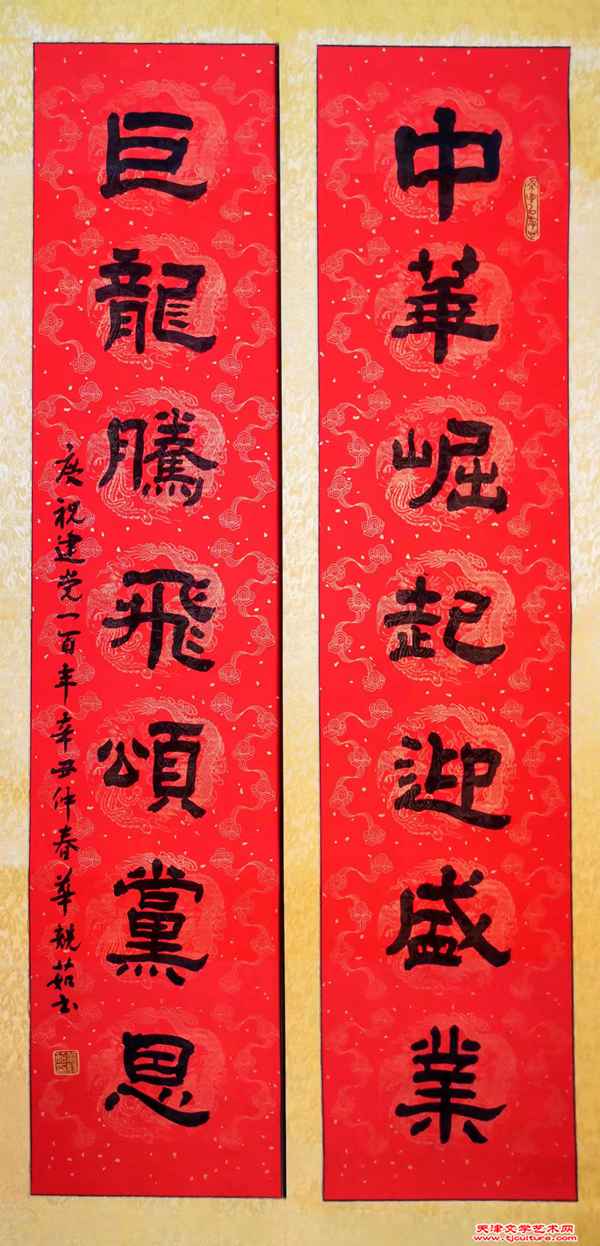 中華崛起迎盛業
巨龍騰飛頌黨恩
庆祝建党一百年辛丑仲春華靓茹书
天津文学艺术网
www.tjculture.com